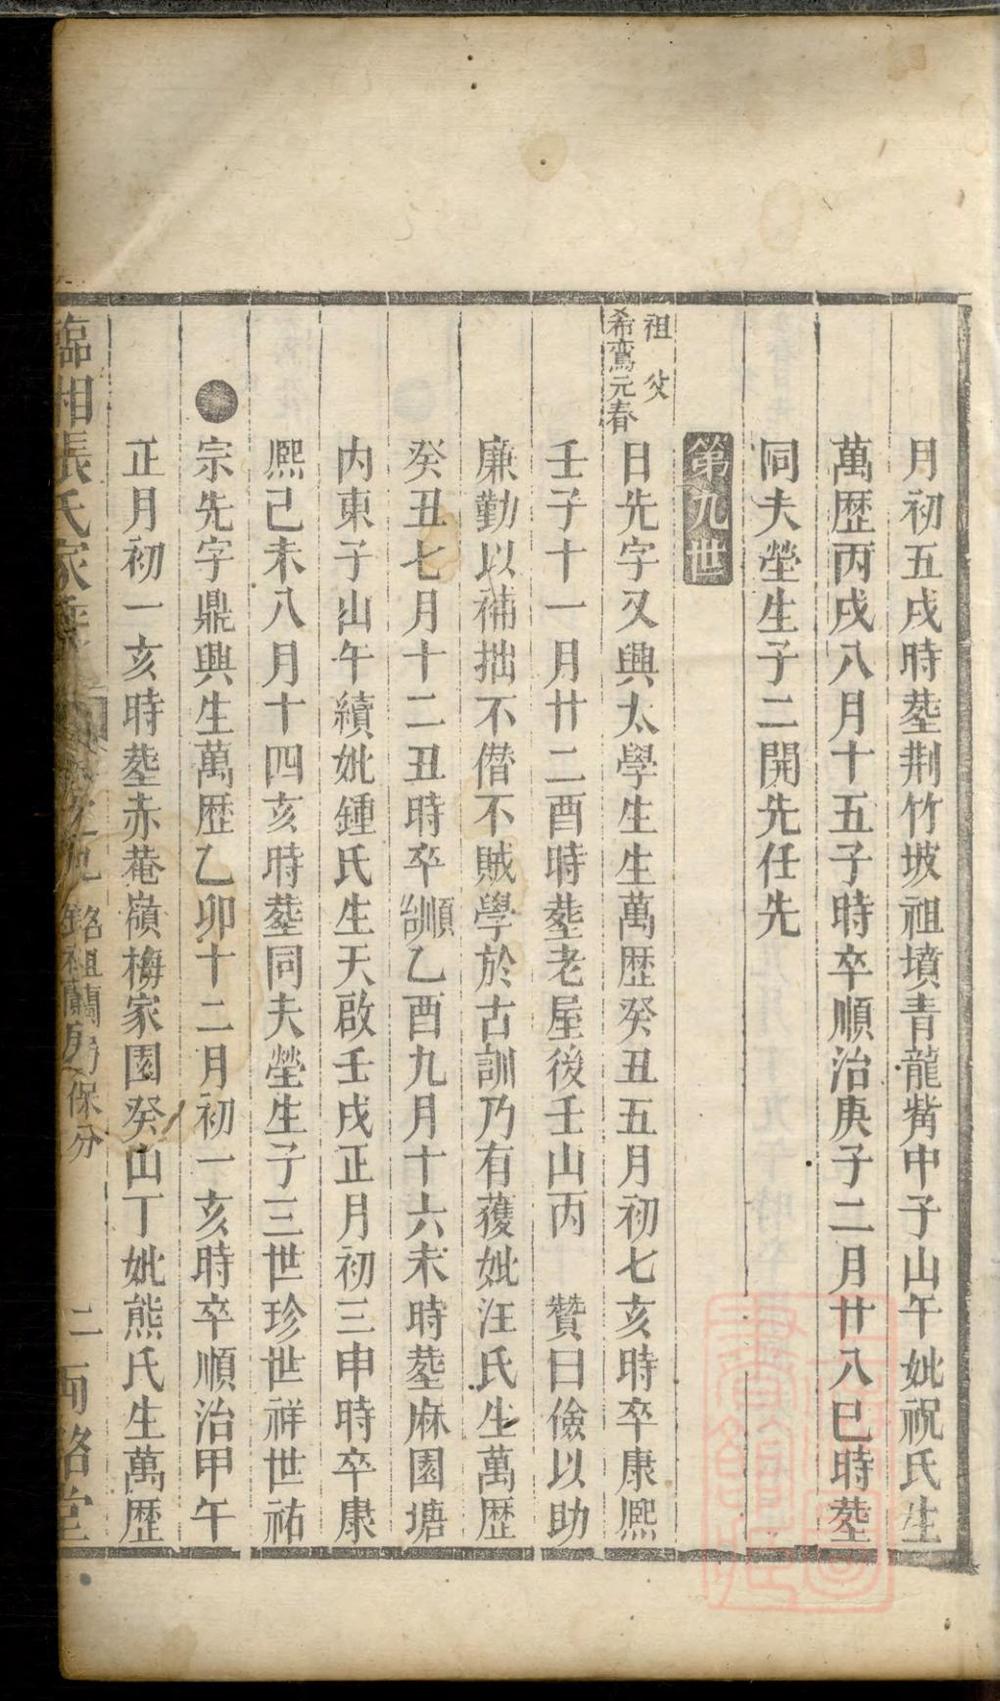 月初五戌時塟荆竹坡祖墳青龍觜中子山午妣祝氏生
萬歴丙戌八月十五子時卒順治庚子二月廿八巳時塟
同夫塋生子二開先任先
第九世
祖父
希鸞元春
日先字又興太學生生萬歴癸丑五月初七亥時卒康熙
壬子十一月廿二酉時塟老屋後壬山丙 贊曰儉以助
廉勤以補拙不僣不賊學於古訓乃有獲妣汪氏生萬歴
癸丑七月十二丑時卒順乙酉九月十六未時塟麻園塘
内東子山午續妣鍾氏生天啟壬戌正月初三申時卒康
熙己未八月十四亥時塟同夫塋生子三世珍世祥世祐
宗先字鼎興生萬歴乙卯十二月初一亥時卒順治甲午
正月初一亥時塟赤菴嶺梅家園癸山丁妣熊氏生萬歴
臨湘張氏家乘 銘祖蘭房保分 二 百路堂